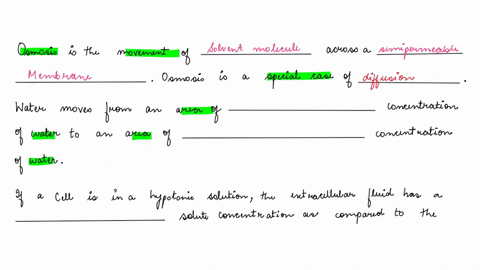 Osmosis is the movement of Solvent molecule across a semipermeable
Membrane. Osmosis is a special case of diffusion.
Water moves from an area of ____________ concentration
of water to an area of ____________ concentration
of water.
If a Cell is in a hypotonic solution, the extracellular fluid has a
____________ solute concentration as compared to the